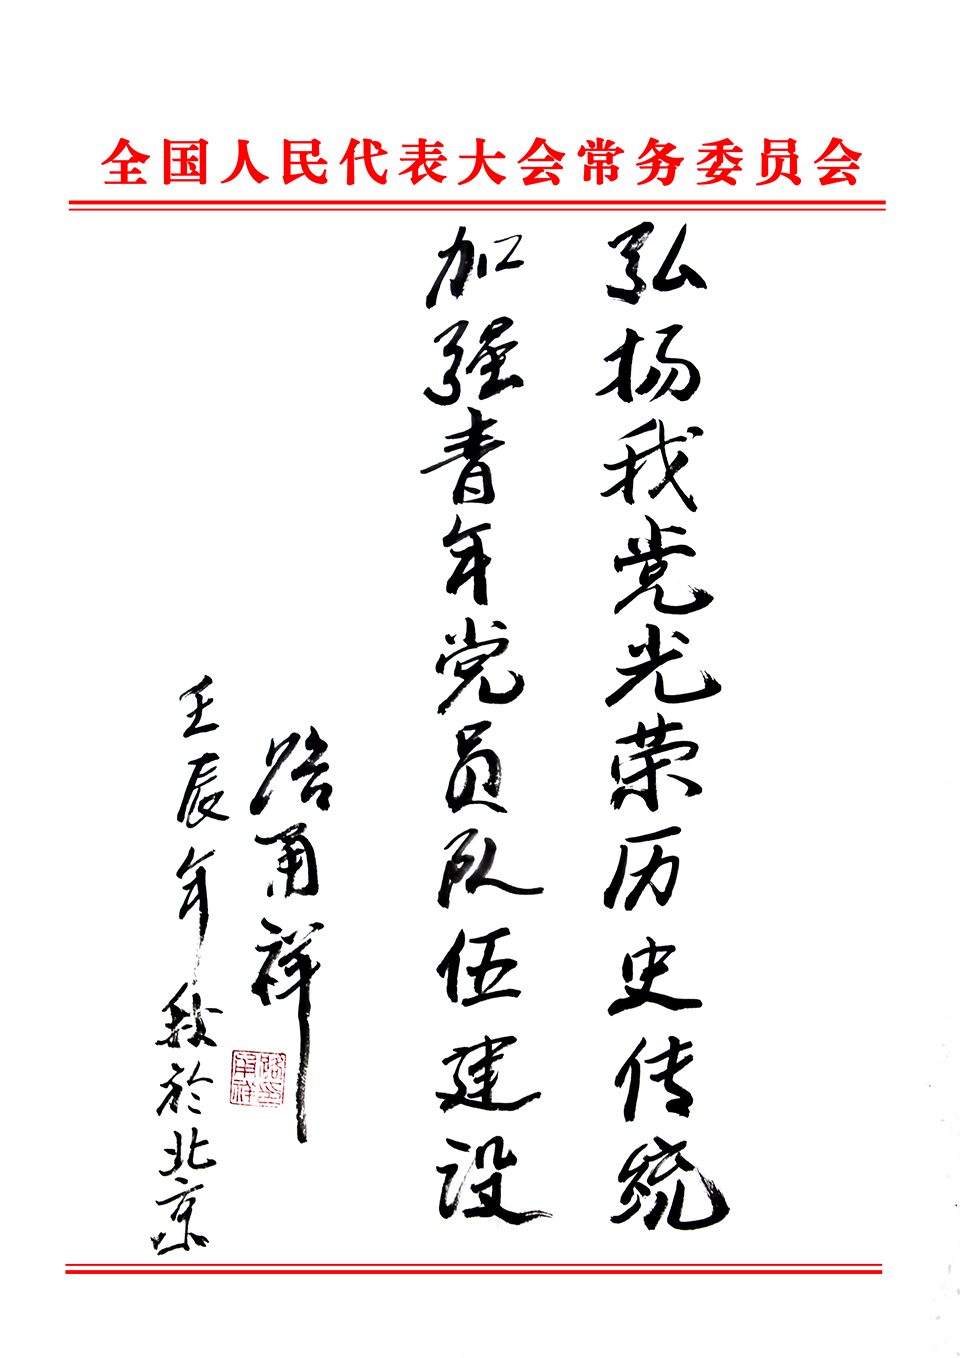 全国人民代表大会常务委员会
弘扬我党光荣历史传统
加强青年党员队伍建设
路甬祥
壬辰年秋於北京
路甬祥